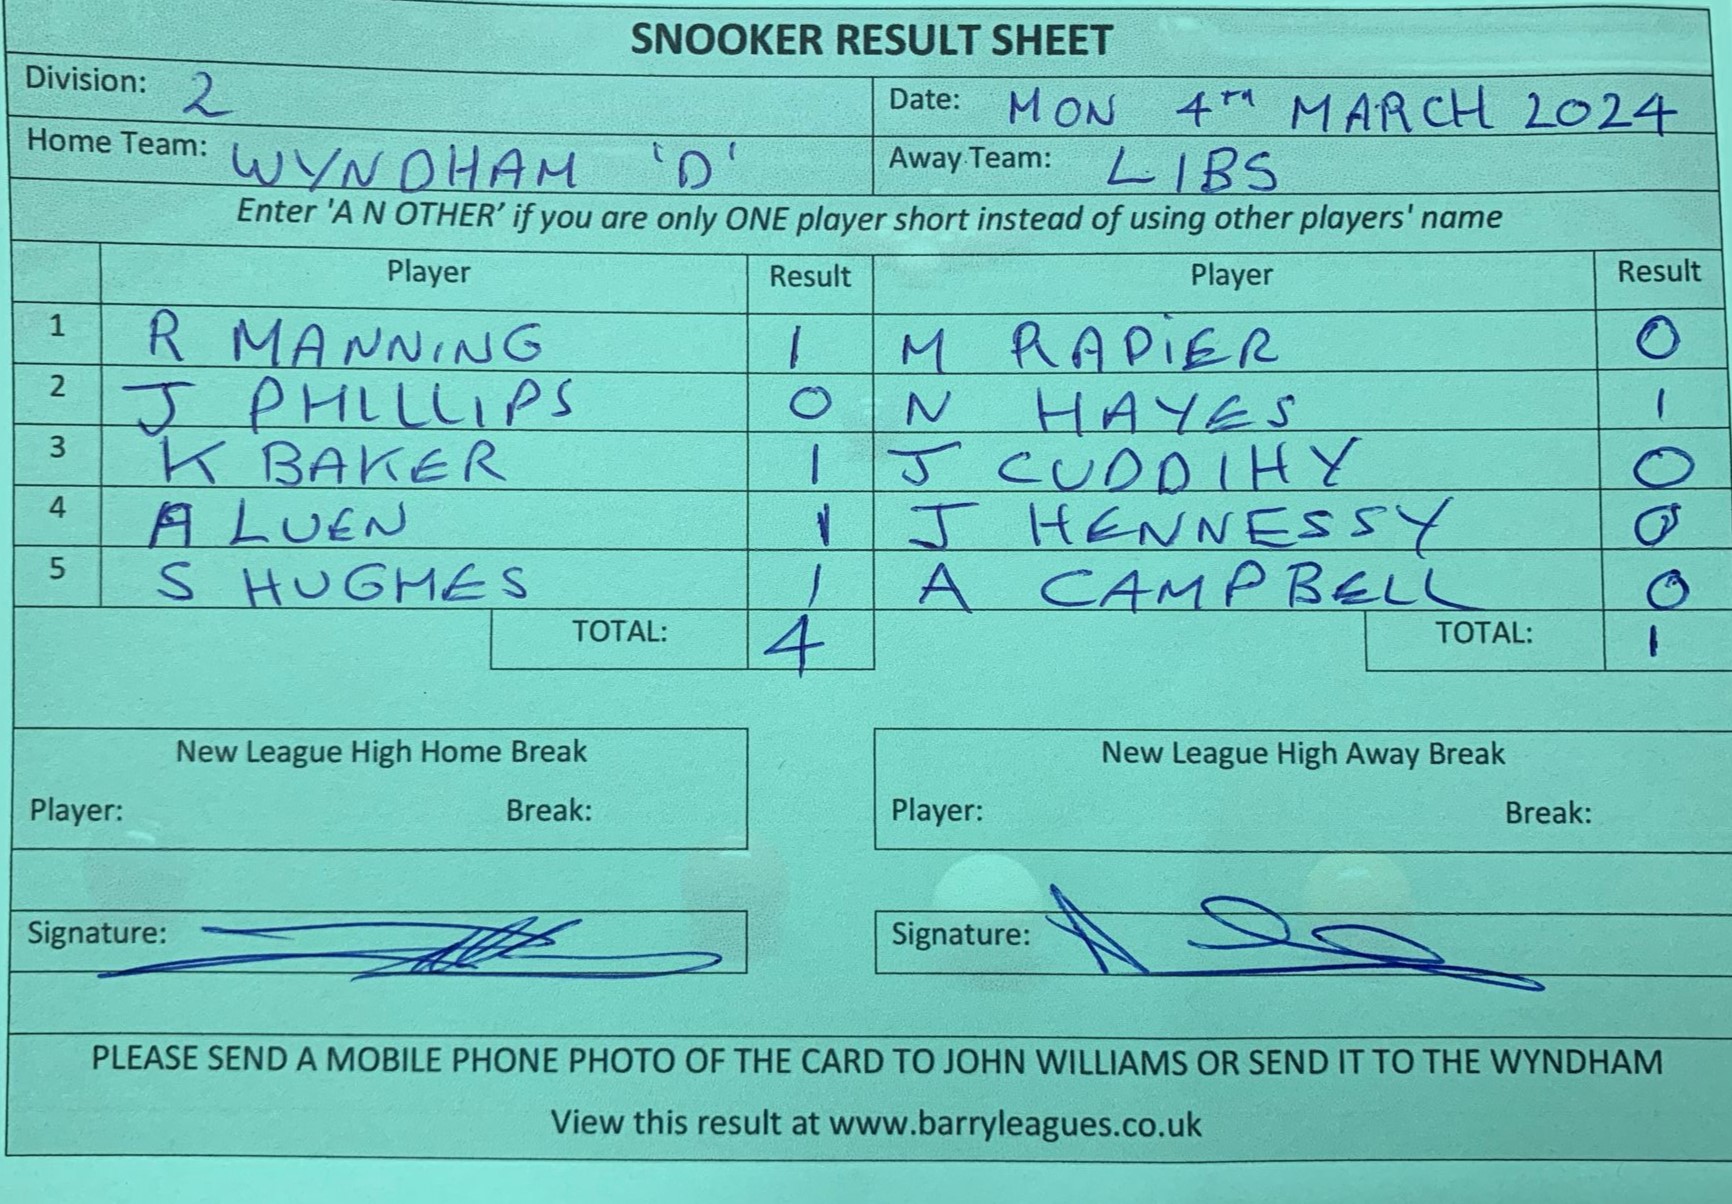 SNOOKER RESULT SHEET
Division: 2 Date: MON 4TH MARCH 2024
Home Team: WYNDHAM 'D' Away Team: LIBS
Enter 'A N OTHER' if you are only ONE player short instead of using other players' name
Player Result Player Result
1 R MANNING 1 M RAPIER 0
2 J PHILLIPS 0 N HAYES 1
3 K BAKER 1 J CUDDIHY 0
4 A LUEN 1 J HENNESSY 0
5 S HUGHES 1 A CAMPBELL 0
TOTAL: 4 TOTAL: 1
New League High Home Break New League High Away Break
Player: Break: Player: Break:
Signature: Signature:
PLEASE SEND A MOBILE PHONE PHOTO OF THE CARD TO JOHN WILLIAMS OR SEND IT TO THE WYNDHAM
View this result at www.barryleagues.co.uk